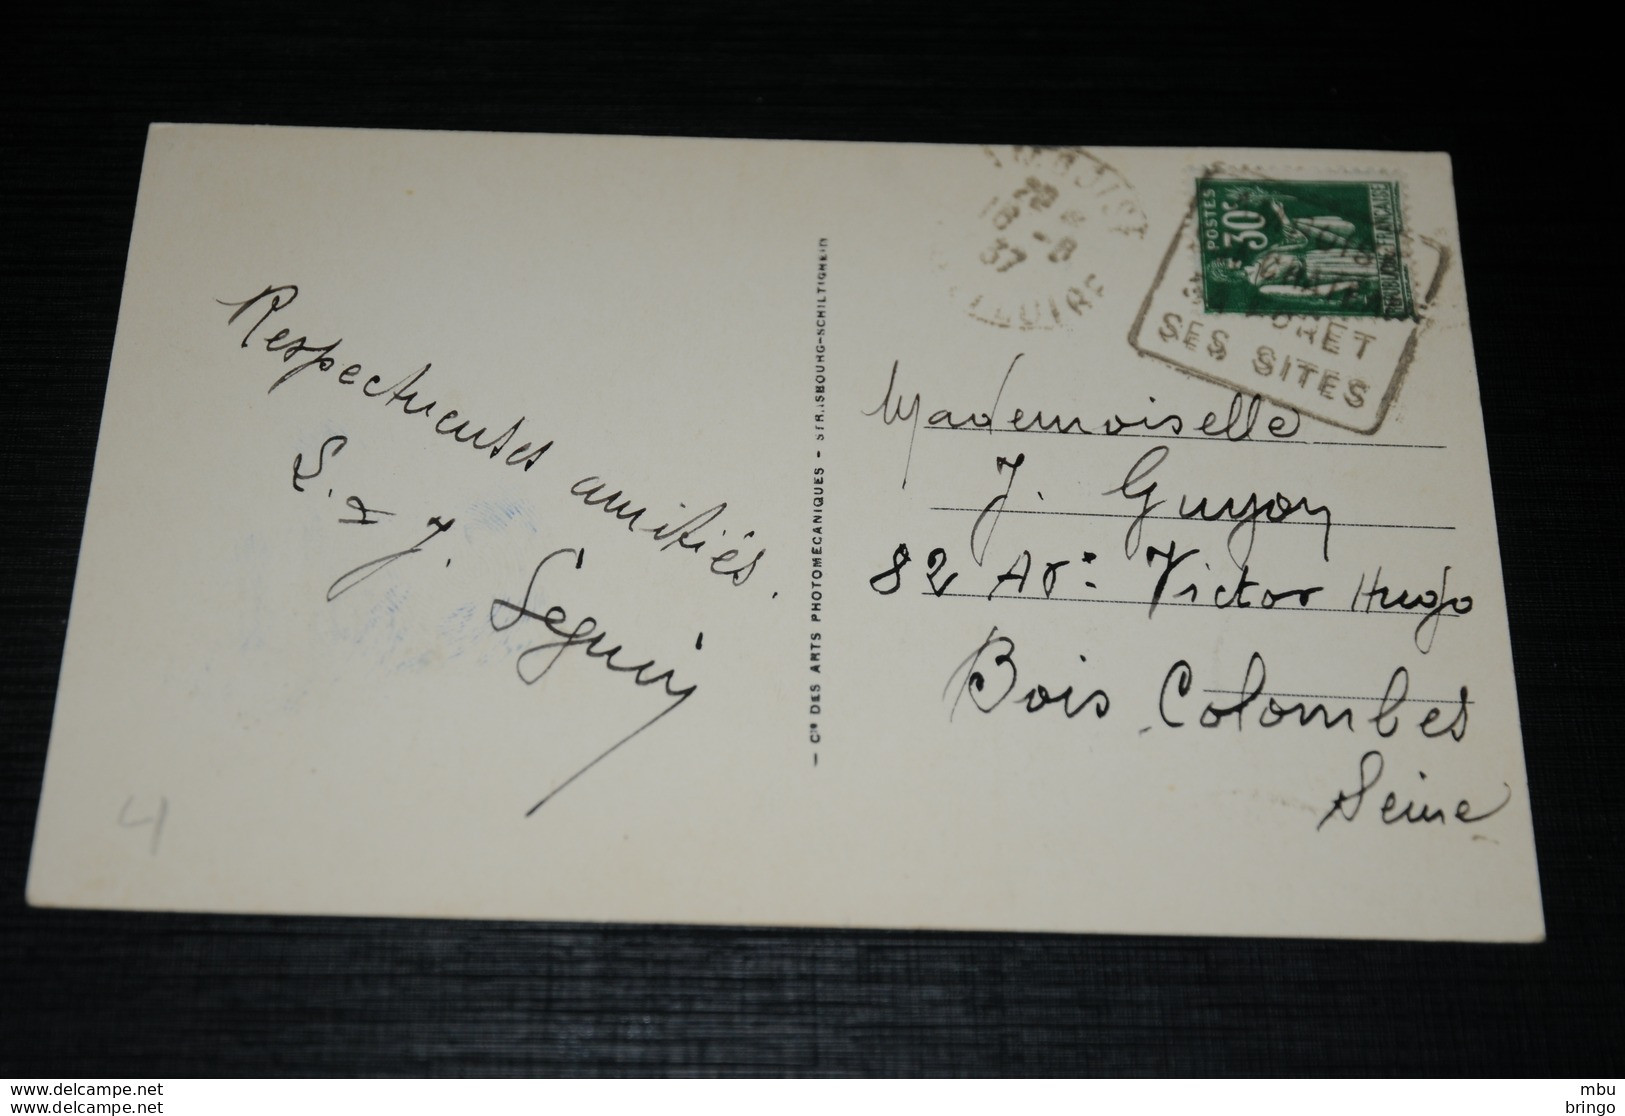 Respectueuses amitiés.
S. & J. Seguin
— Cie DES ARTS PHOTOMECANIQUES - STRASBOURG-SCHILTIGHEIM
18 -8
37
POSTES
30c
REPUBLIQUE FRANÇAISE
FORET
SES SITES
Mademoiselle
J. Guyon
82 Av. Victor Hugo
Bois Colombes
Seine
4
www.delcampe.net
www.delcampe.net
mbu
bringo